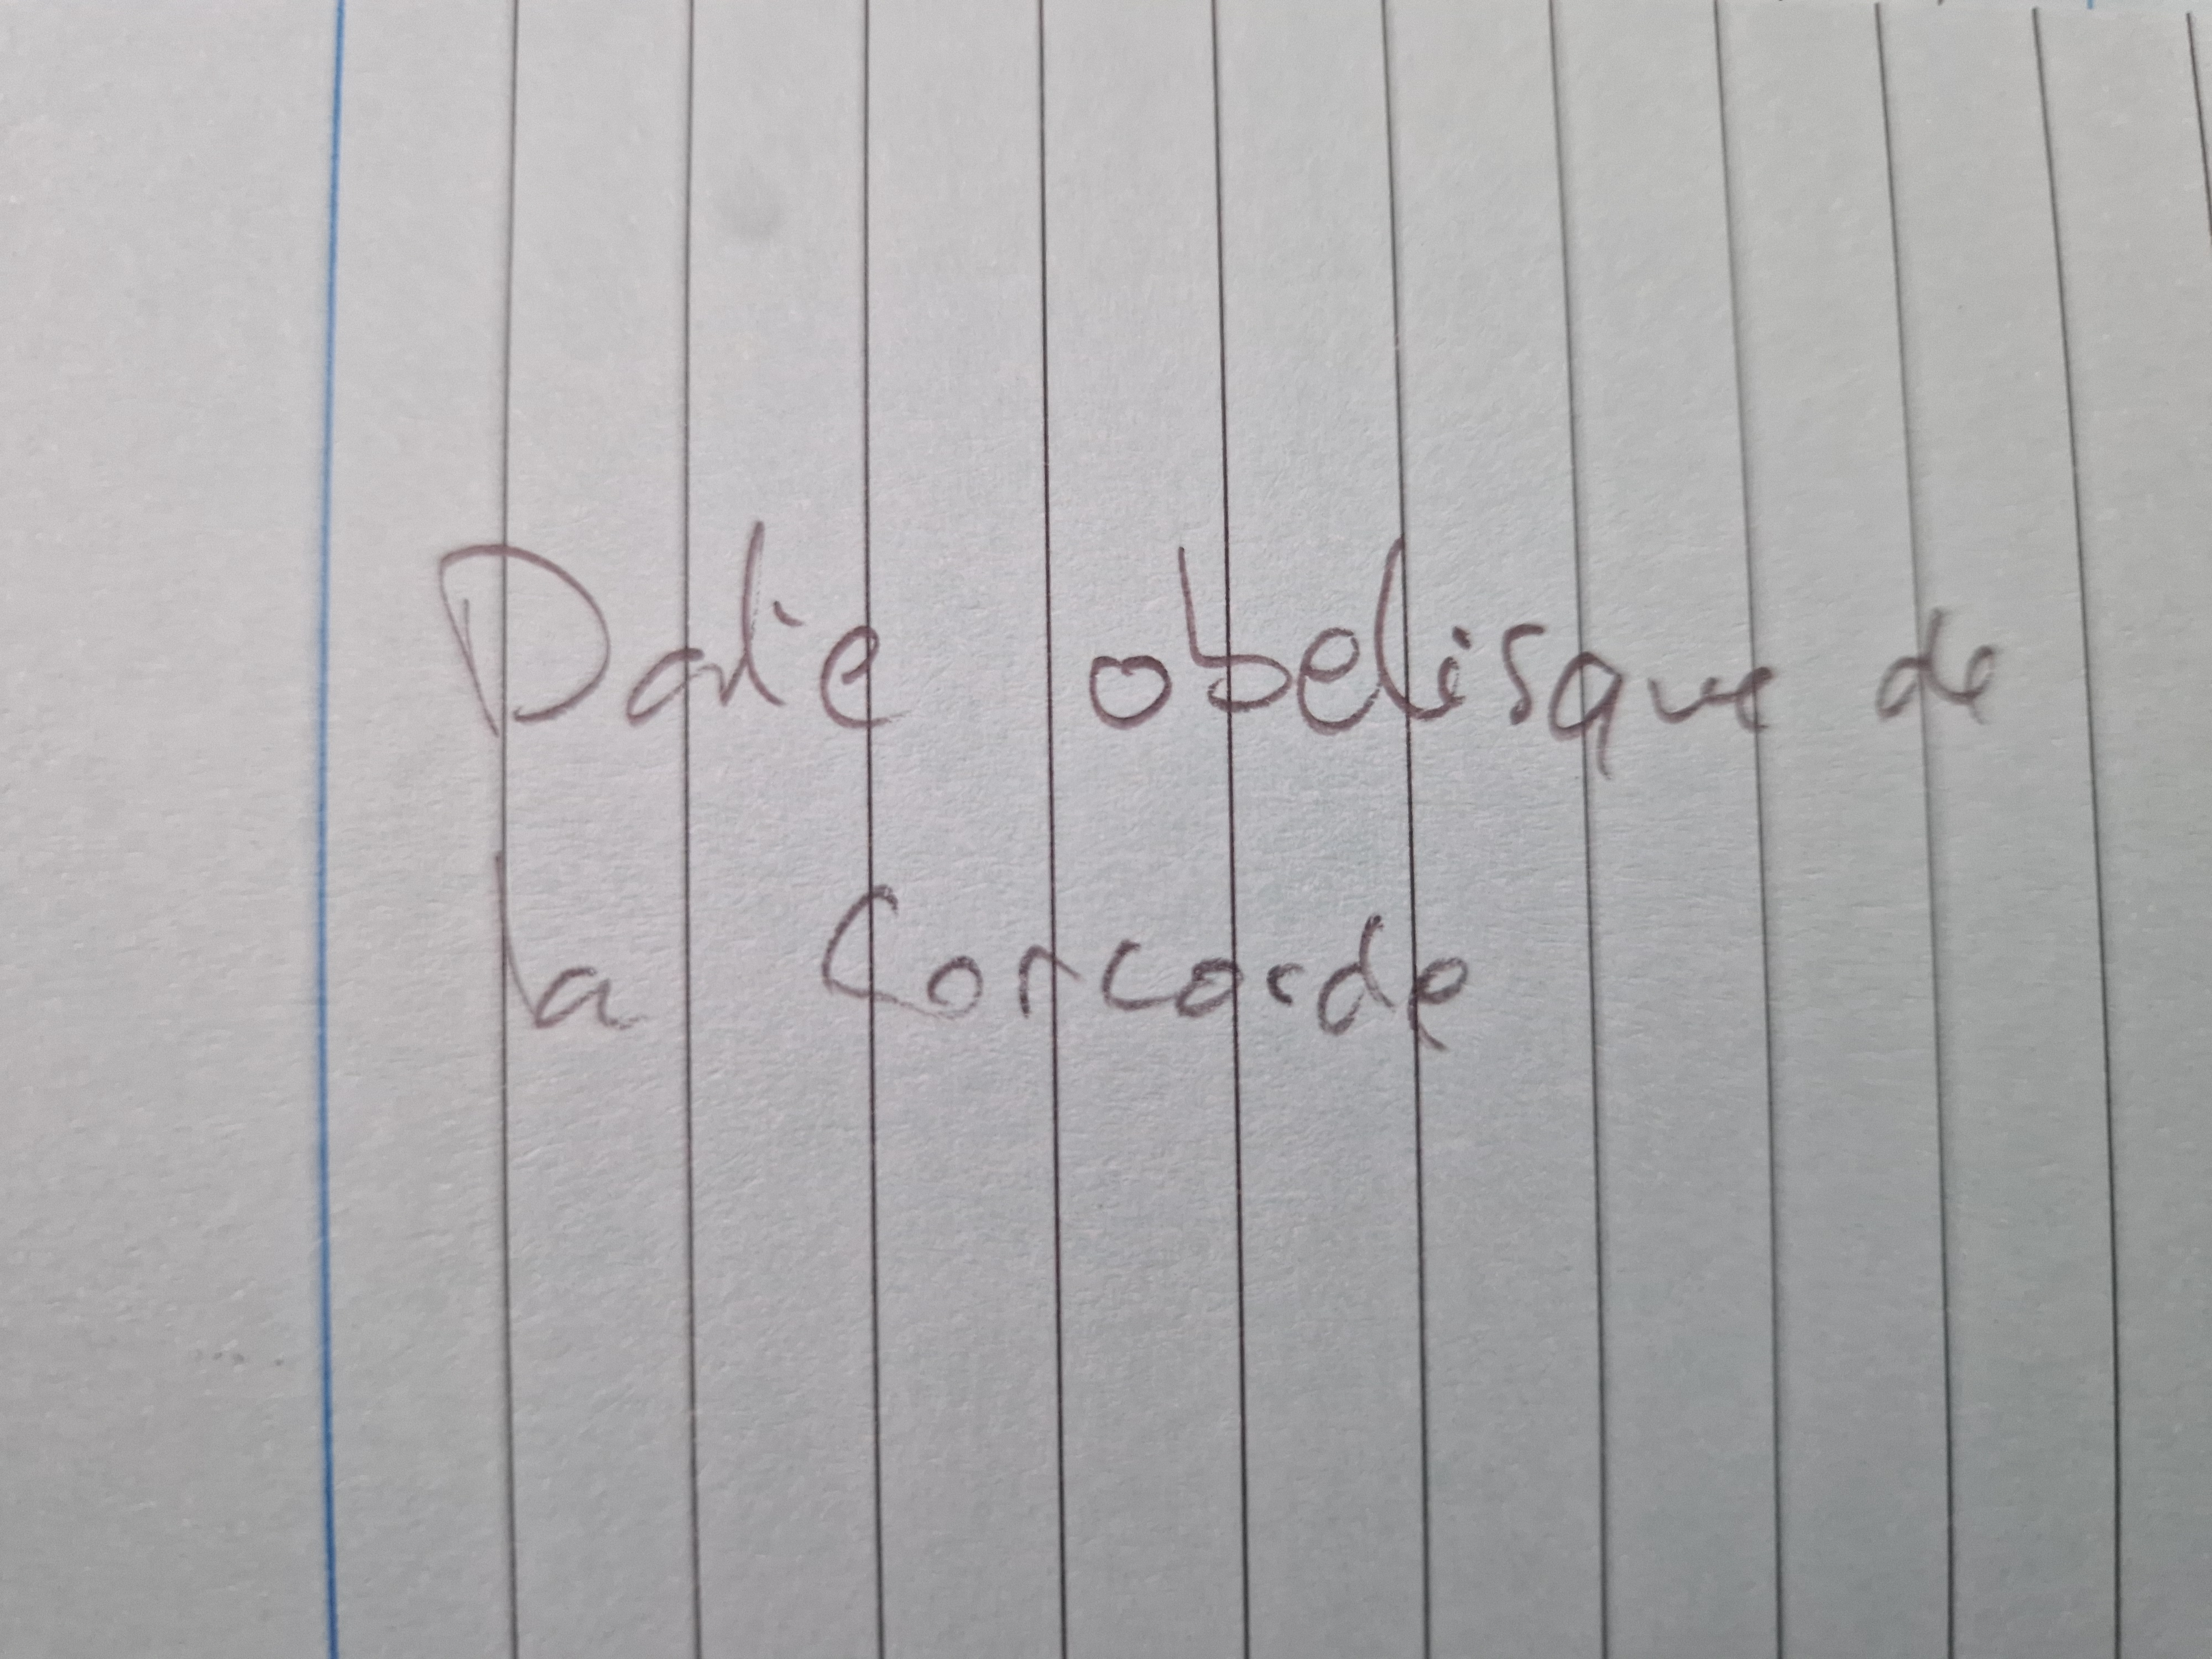 Date obelisque de
la Concorde